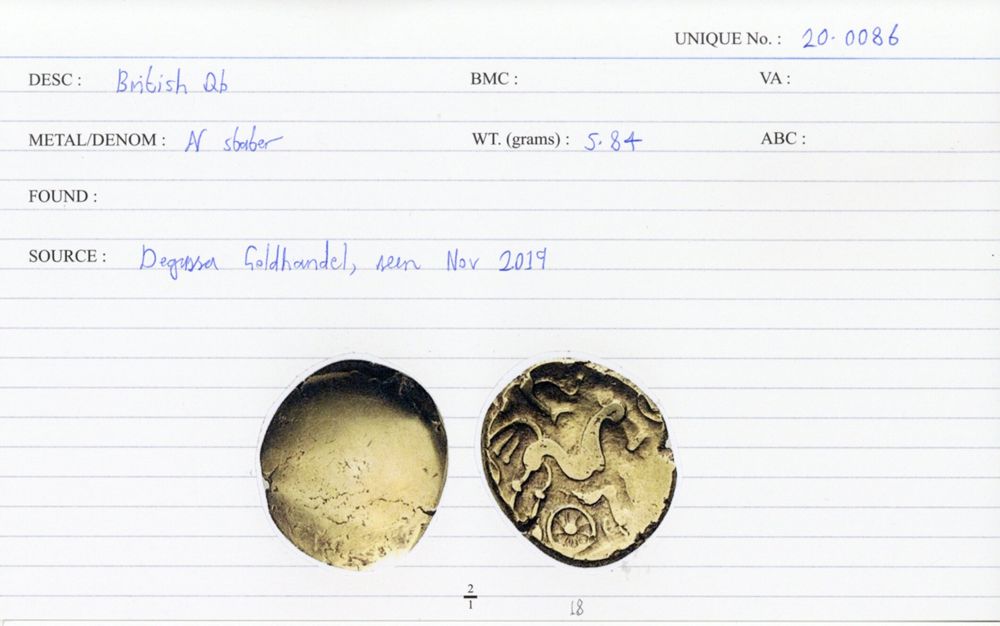 UNIQUE No. : 20.0086
DESC : British Qb BMC : VA :
METAL/DENOM : AV stater WT. (grams) : 5.84 ABC :
FOUND :
SOURCE : Degussa Goldhandel, seen Nov 2019
2
1
18